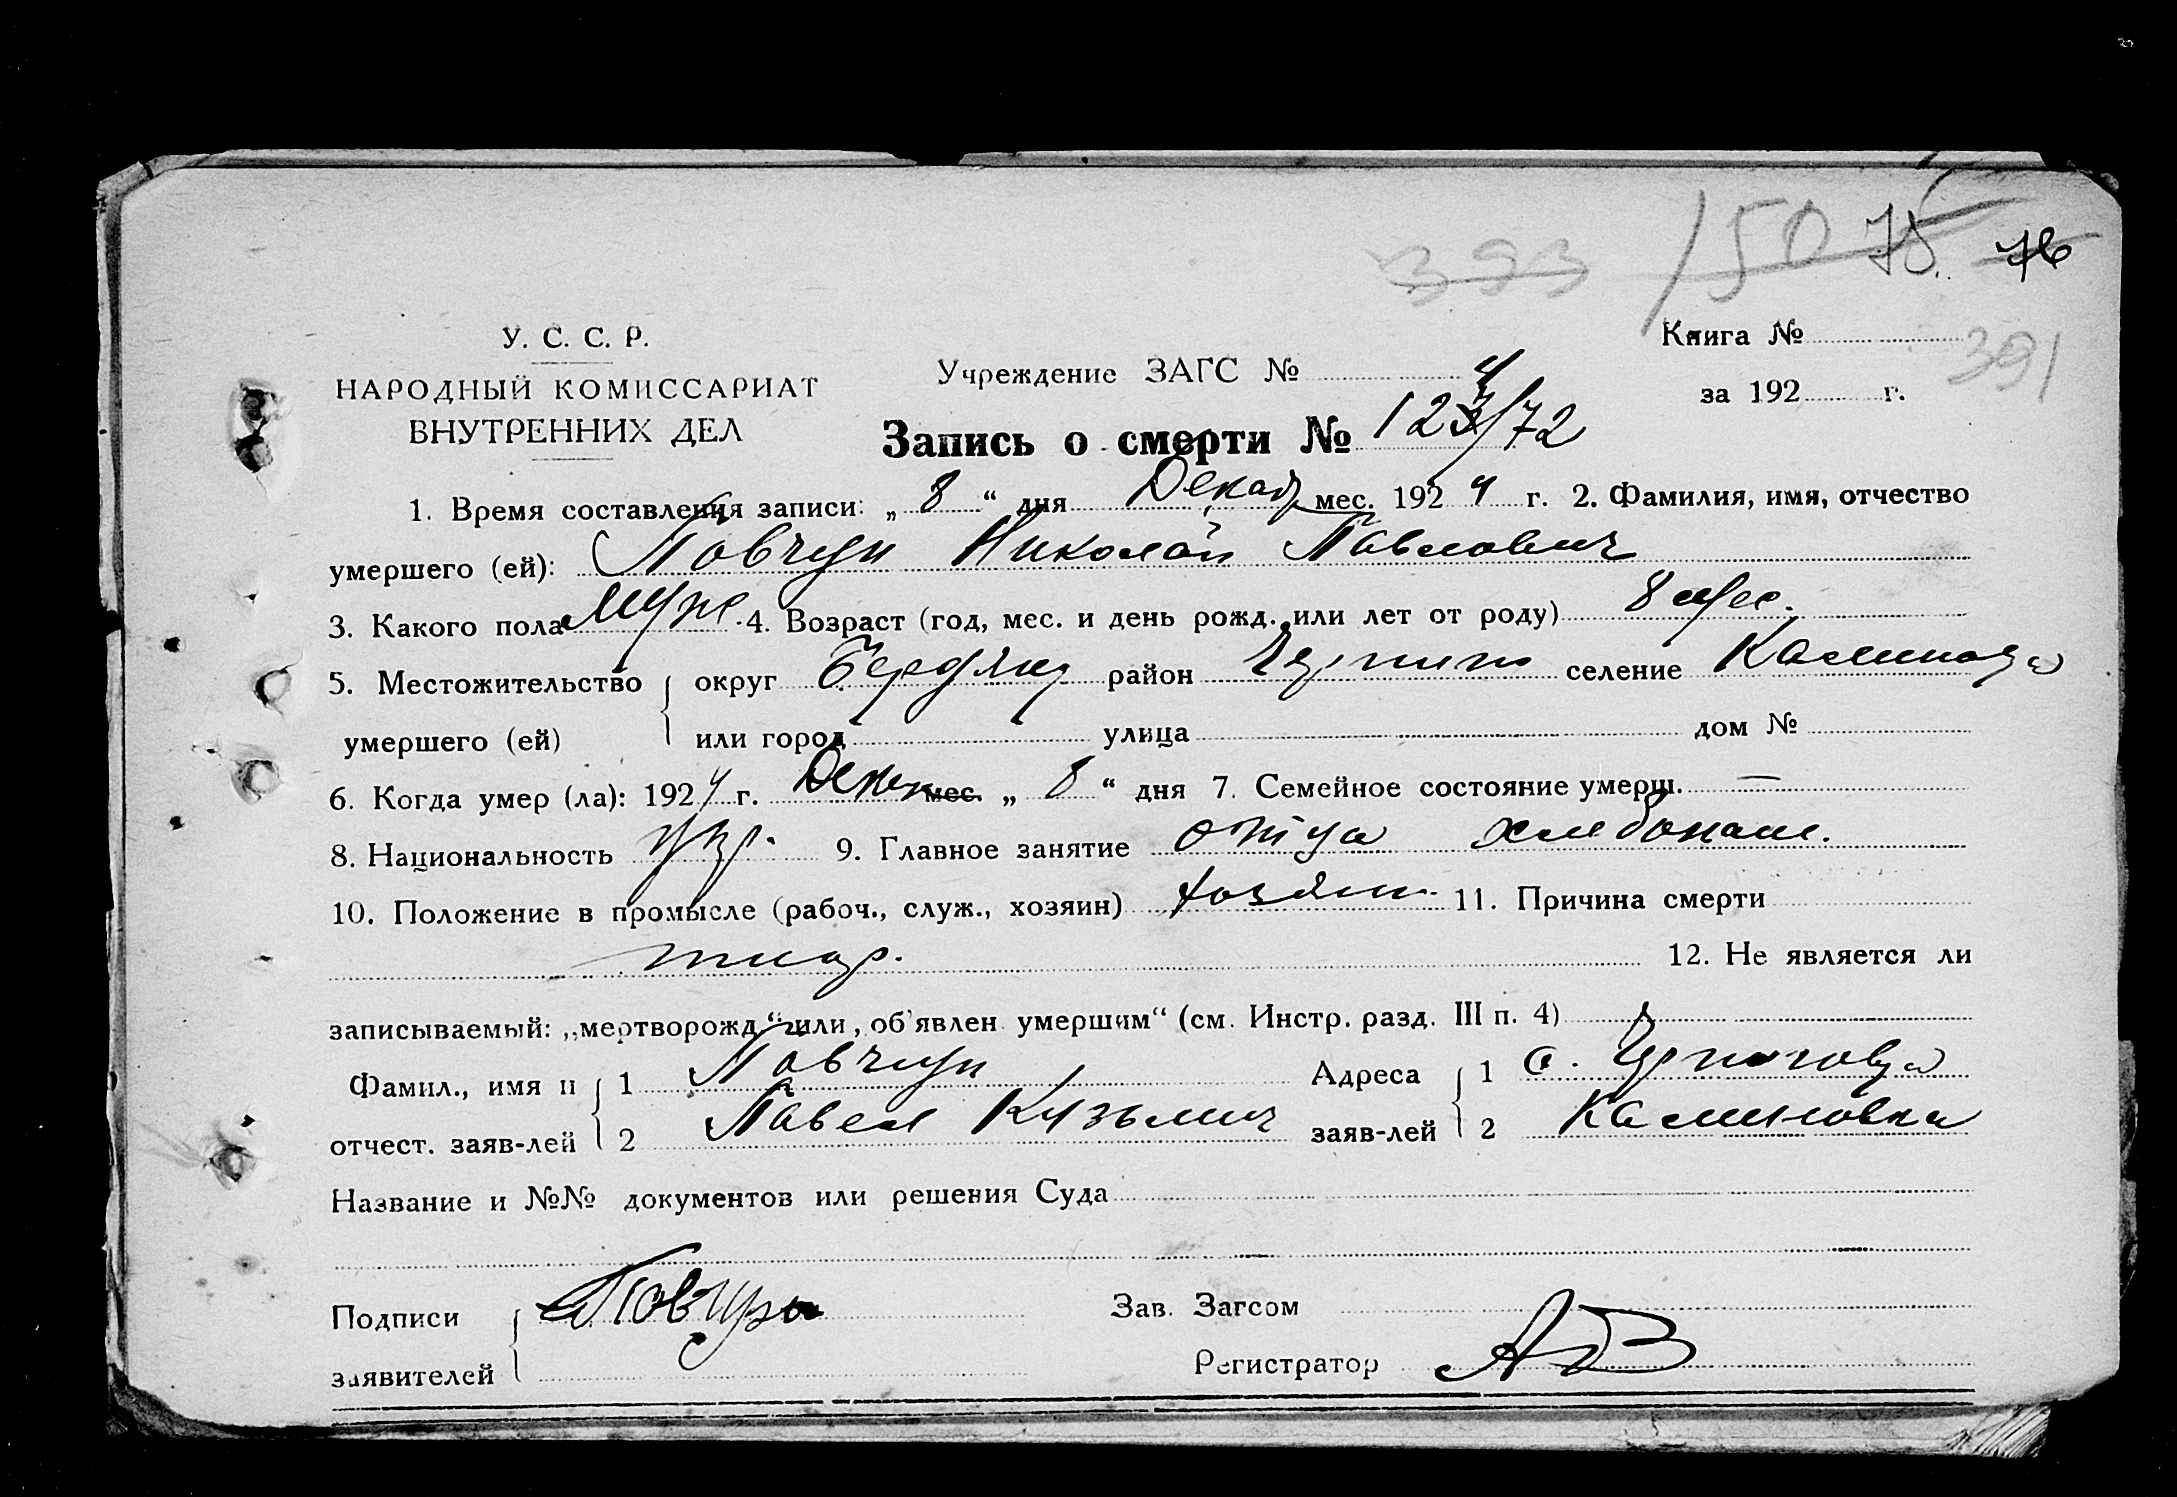 393 150 75 76
У. С. С. Р.
Книга № 391
НАРОДНЫЙ КОМИССАРИАТ
Учреждение ЗАГС №
за 192 г.
ВНУТРЕННИХ ДЕЛ
Запись о смерти № 124/72
1. Время составления записи: „ 8 “ дня Декаб мес. 1924 г. 2. Фамилия, имя, отчество
умершего (ей): Повчун Николай Павлович
3. Какого пола Муж. 4. Возраст (год, мес. и день рожд. или лет от роду) 8 мес.
5. Местожительство округ Бердянц район селение Калиновка
умершего (ей) или город улица дом №
6. Когда умер (ла): 1924 г. Декаб мес. „ 8 “ дня 7. Семейное состояние умерш. —
8. Национальность укр. 9. Главное занятие отца хлебопаш.
10. Положение в промысле (рабоч., служ., хозяин) хозяин 11. Причина смерти
12. Не является ли
записываемый: „мертворожд.“ или „об'явлен умершим“ (см. Инстр. разд. III п. 4)
Фамил., имя и 1 Повчун Адреса 1 с.
отчест. заяв-лей 2 Павел Кузьмич заяв-лей 2 Калиновка
Название и №№ документов или решения Суда
Подписи Повчун Зав. Загсом
заявителей Регистратор